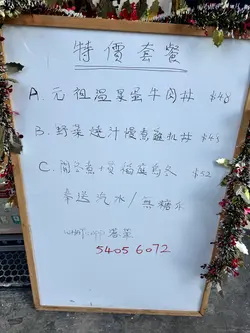 特價套餐
A. 元祖溫泉蛋牛肉丼 $48
B. 野菜燒汁慢煮雞扒丼 $48
C. 關公煮 $52
奉送汽水/無糖茶
whatsapp落單
5405 6072